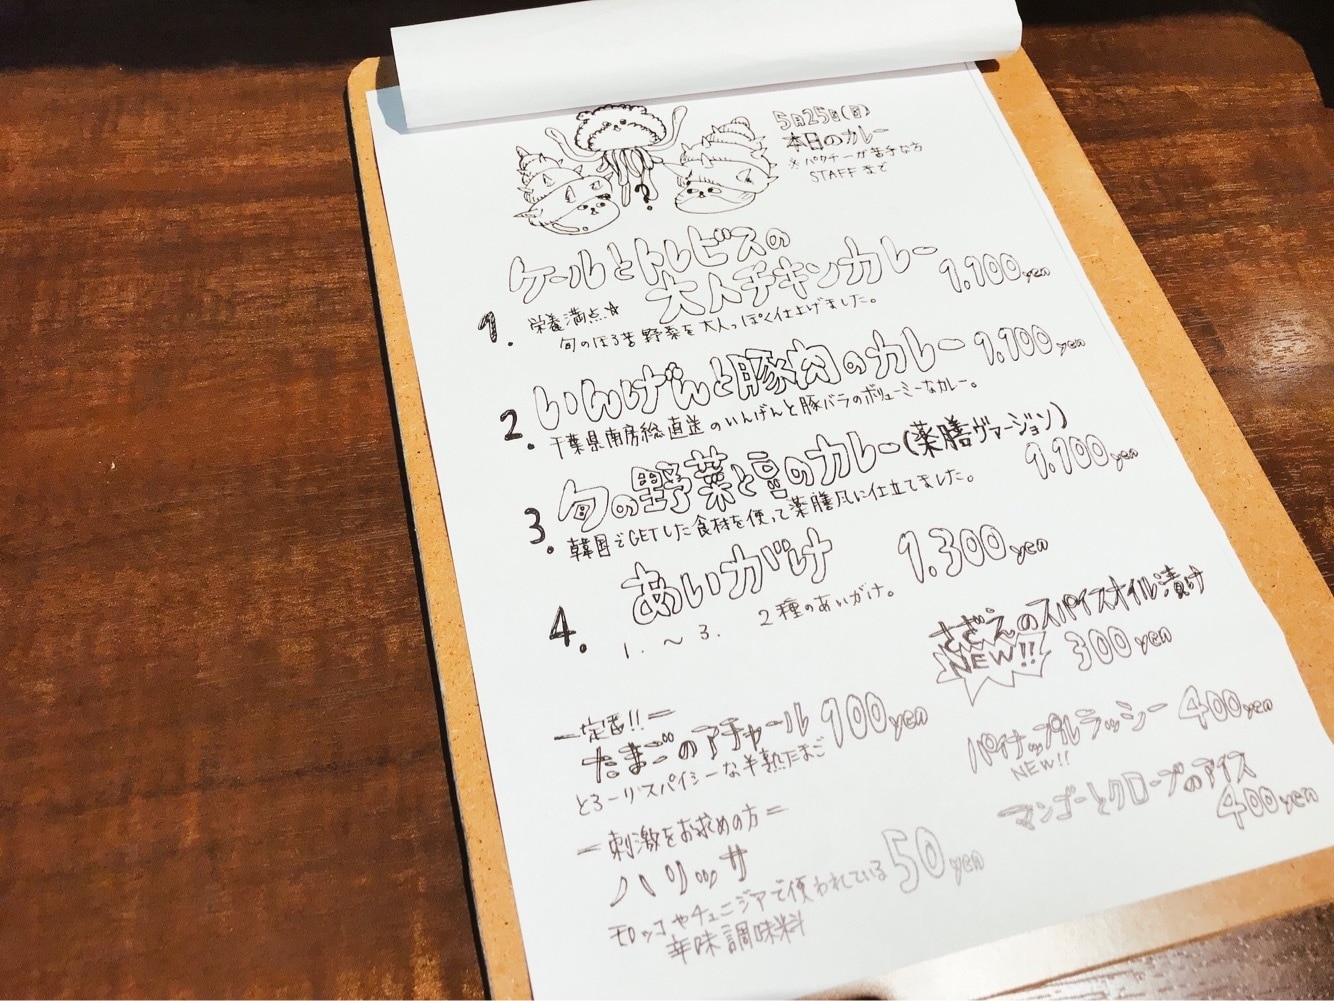 5月25日(日)
本日のカレー
※パクチーが苦手な方
STAFFまで
ケールとトレビスの
大人チキンカレー 1.100yen
1. 栄養満点☆
旬のほろ苦野菜を大人っぽく仕上げました。
いんげんと豚肉のカレー 1.100yen
2. 千葉県南房総直送のいんげんと豚バラのボリューミーなカレー。
旬の野菜と豆のカレー(薬膳ヴァージョン)
1.100yen
3. 韓国でGETした食材を使って薬膳風に仕立てました。
あいがけ 1.300yen
4. 1.〜3. 2種のあいがけ。
さざえのスパイスオイル漬け
NEW!! 300yen
ー定番!!ー
たまごのアチャール 100yen
とろーりスパイシーな半熟たまご
パイナップルラッシー 400yen
NEW!!
マンゴーとクローブのアイス
400yen
ー刺激をお求めの方ー
ハリッサ
モロッコやチュニジアで使われている 50yen
辛味調味料